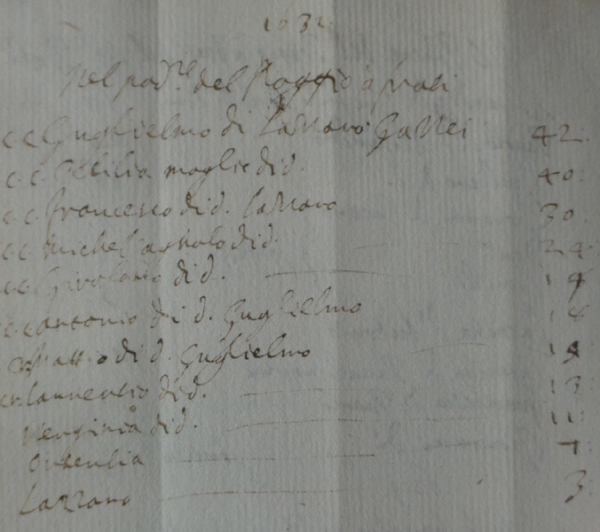 1632
Nel pod.re del Poggio a prati
c c Guglielmo di Lazzaro Gallei 42
c. c. Cecilia moglie di d. 40
c c francesco di d. Lazzaro 30
c c michelagnolo di d. 24
c c Girolamo di d. 19
c c antonio di d. Guglielmo
Matteo di d. Guglielmo
laurentio di d. 13
Verginia di d. 11
Ortentia 7
Lazzaro 3